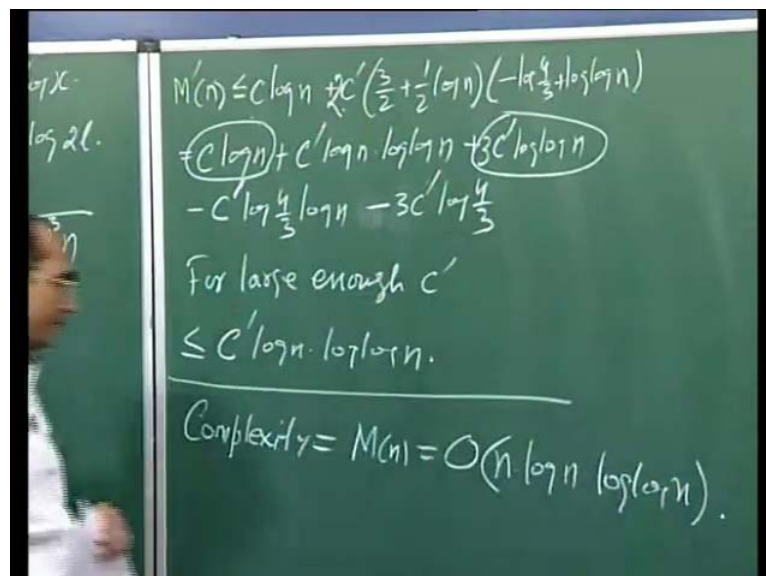 og x.
log 2l.
3
n
M'(n) ≤ C log n + 2C' (3/2 + 1/2 log n) (-log 4/3 + log log n)
= C log n + C' log n · log log n + 3C' log log n
- C' log 4/3 log n - 3C' log 4/3
For large enough C'
≤ C' log n · log log n.
Complexity = M(n) = O(n log n log log n).